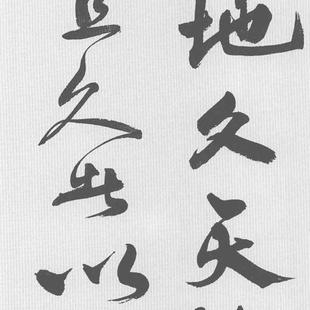 地久天
且久者以